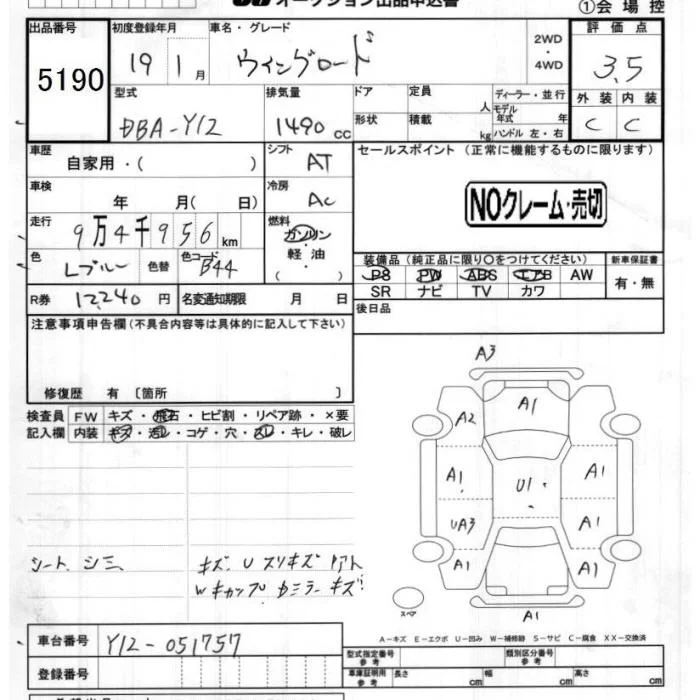 オークション出品申込書
①会場控
出品番号 5190
初度登録年月 19 1月
車名・グレード ウイングロード
2WD・4WD
評価点 3.5
型式 DBA-Y12
排気量 1490cc
ドア 形状
定員 人 積載 kg
ディーラー・並行
モデル年式 年
ハンドル 左・右
外装 C 内装 C
車歴 自家用・( )
シフト AT
セールスポイント (正常に機能するものに限ります)
車検 年 月( 日)
冷房 AC
NOクレーム・売切
走行 9万4千956km
燃料 ガソリン・軽油 ( )
色 Lブルー 色替 色コード B44
装備品 (純正品に限り○をつけてください)
PS PW ABS エアB AW
SR ナビ TV カワ
新車保証書 有・無
R券 12,240円 名変通知期限 月 日
後日品
注意事項申告欄(不具合内容等は具体的に記入して下さい)
修復歴 有 〔箇所 〕
検査員記入欄
FW キズ・飛石・ヒビ割・リペア跡・×要
内装 キズ・汚レ・コゲ・穴・スレ・キレ・破レ
シート シミ
キズ U スリキズ
Wキャップ ミラーキズ
A3
A2 A1
A1 U1 A1
UA3 A1
A1 A1
スペア
A1
A-キズ E-エクボ U-凹み W-補修跡 S-サビ C-腐食 XX-交換済
車台番号 Y12-051757
登録番号
型式指定番号 参考 類別区分番号 参考
車庫証明用 参考 長さ cm 幅 cm 高さ cm